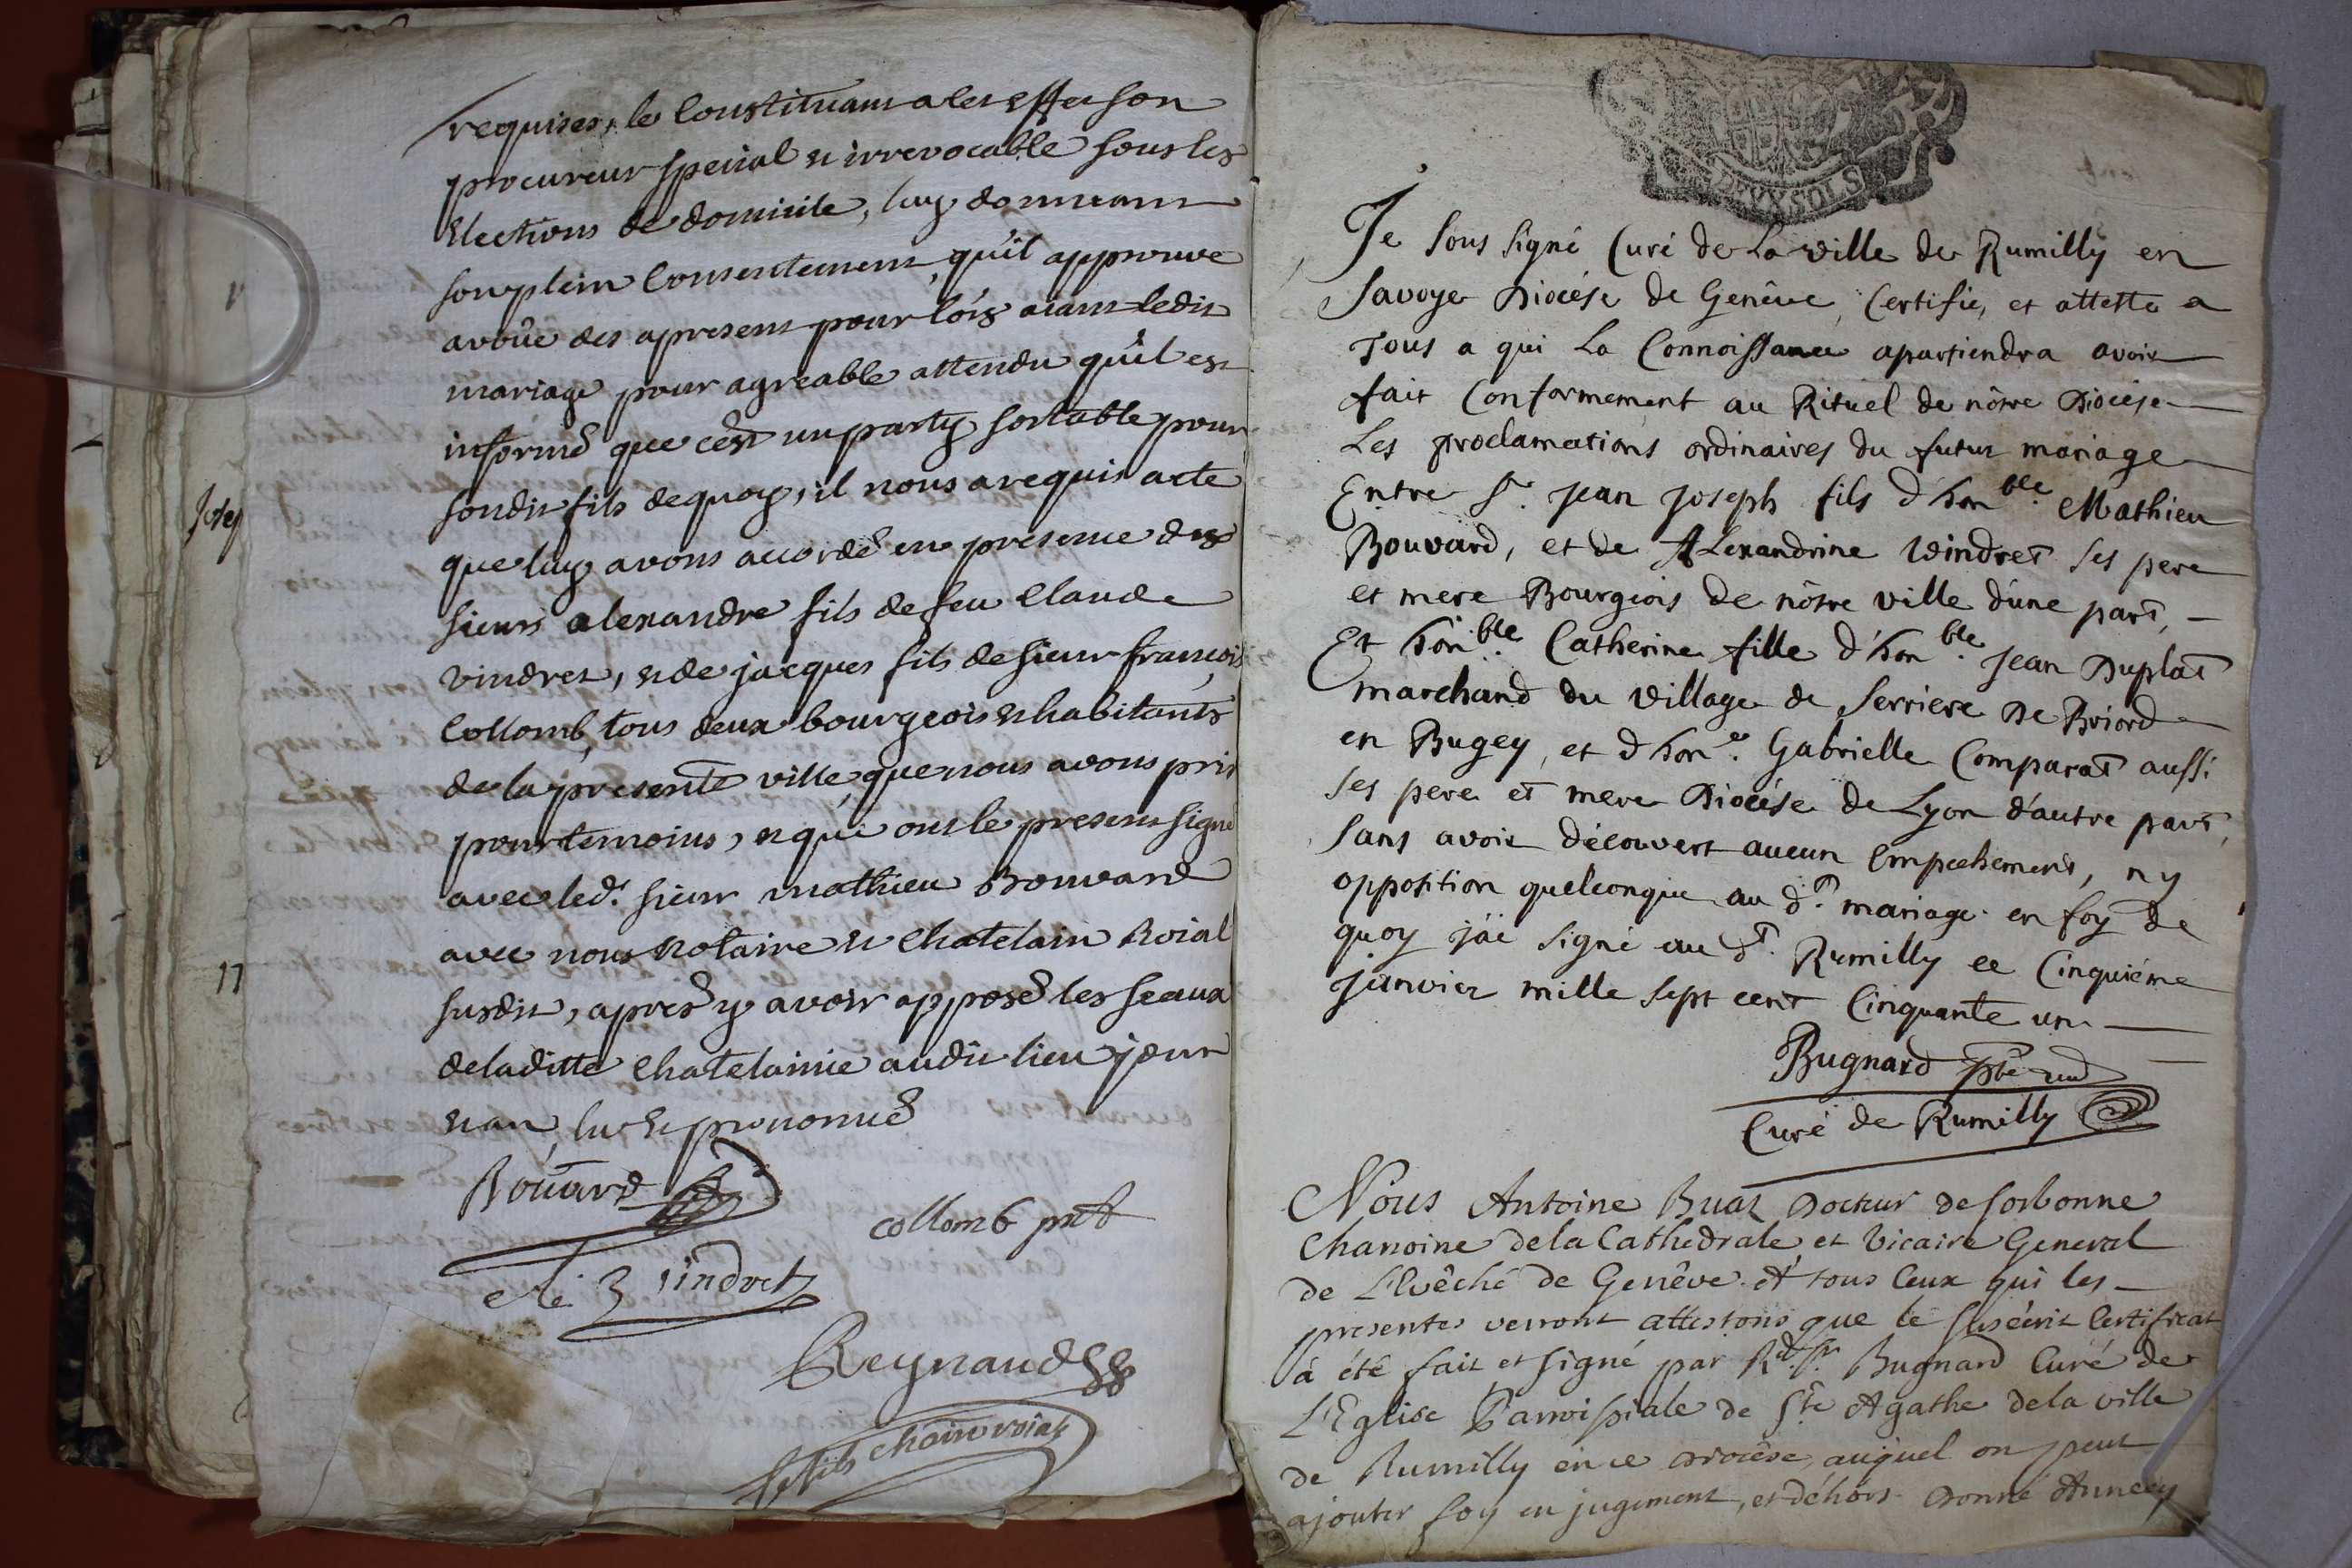 requises, le Constituant a cet effet son
procureur special et irrevocable sous les
Elections de domicile, luy donnant
son plein Consentement, qu'il approuve
avoüe des apresent pour lórs aiant ledit
mariage pour agreable attendu qu'il est
informé que c'est un party sortable pour
sondit fils dequoy, il nous a requis acte
que luy avons accordé en presence des
sieurs alexandre fils de feu Claude
vindret, et de jacques fils de sieur francois
Collomb, tous deux bourgeois et habitants
de la presente ville, que nous avons pris
pour temoins, et qui ont le present signé
avec led.t sieur mathieu Bouvard
avec nous notaire et Chatelain Roial
susdit, aprés y avoir apposé les sceaux
deladitte Chatelainie audit lieu jour
et an, lu et prononcé
Bouvard
collomb pnt
vindret
Reynaud
chain roial
Josep
11
DEUX SOLS
Je sous signé Curé de La ville de Rumilly en
Savoye Diocése de Genêve, Certifie, et atteste a
Tous a qui La Connoissance apartiendra avoir
fait Conformement au Rituel de nôtre Diocése
Les proclamations ordinaires du futur mariage
Entre Sr. Jean Joseph fils d'hon.ble Mathieu
Bouvard, et de Alexandrine Vindret ses pere
et mere Bourgeois de nôtre ville d'une part,
Et hon.ble Catherine fille d'hon.ble Jean Duplat
marchand du village de Serriere De Briord
en Bugey, et d'hon.e Gabrielle Comparat aussi
ses pere et mere Diocése de Lyon d'autre part,
sans avoir découvert aucun Empechement, ny
opposition quelconque au d.t mariage. en foy de
quoy j'ái signé au d.t Rumilly ce Cinquiéme
Janvier mille sept cent Cinquante un.
Bugnard pbr
Curé de Rumilly
Nous Antoine Buaz Docteur de sorbonne
Chanoine de la Cathedrale et Vicaire General
de L'Evêché de Genêve. A tous Ceux qui les
presentes verront attestons que le susécrit Certificat
à été fait et signé par Rd. Sr. Bugnard Curé de
L'Eglise Parroissiale de Ste Agathe de la ville
de Rumilly en ce diocése, auquel on peut
ajouter foy en jugement, et déhors. Donné Annecy